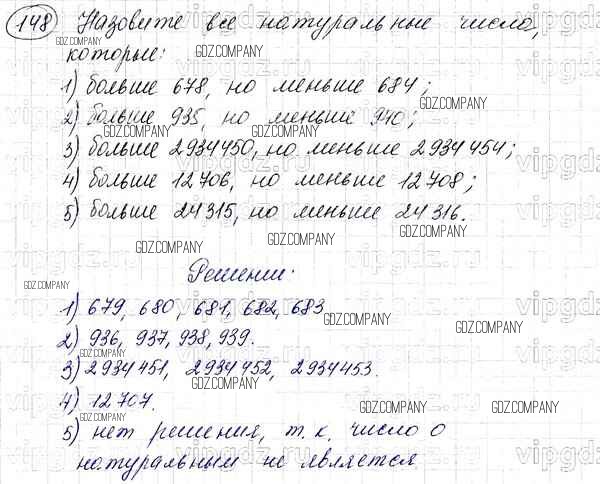 148 Назовите все натуральные числа,
которые:
1) больше 678, но меньше 684;
2) больше 935, но меньше 940;
3) больше 2934450, но меньше 2934454;
4) больше 12706, но меньше 12708;
5) больше 24315, но меньше 24316.
Решении.
1) 679, 680, 681, 682, 683
2) 936, 937, 938, 939.
3) 2934451, 2934452, 2934453.
4) 12707.
5) нет решения, т.к. число 0
натуральным не является